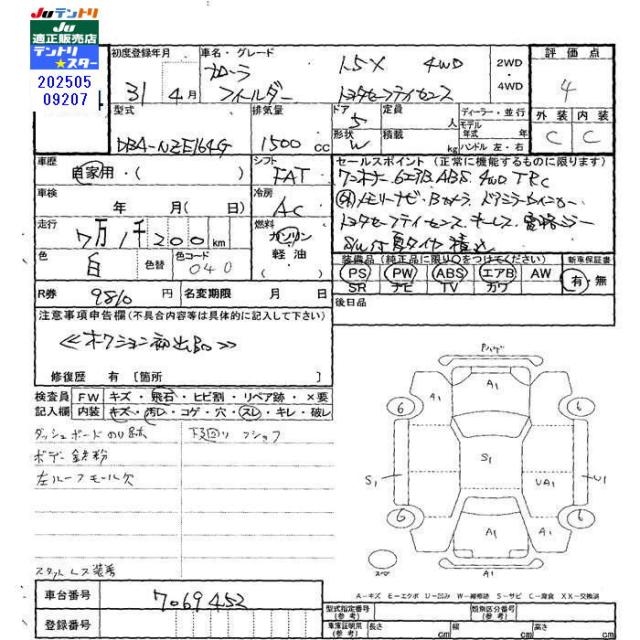 Juテントリ
Ju
適正販売店
テントリ
★スター
202505
09207
初度登録年月
31年 4月
車名・グレード
カローラ
フィールダー
1.5X 4WD
トヨタセーフティセンス
2WD
・
4WD
評価点
4
外装 内装
C C
型式
DBA-NZE164G
排気量
1500 cc
ドア
5
形状
W
定員 人
積載 kg
ディーラー・並行
モデル年式 年
ハンドル 左・右
車歴
自家用・( )
シフト
FAT
車検
年 月( )
冷房
AC
走行
7万1千200km
燃料
ガソリン
・
軽油
( )
色
白
色替
色コード
040
R券 9810円
名変期限 月 日
セールスポイント(正常に機能するものに限ります)
ワンオーナー 6エアB ABS 4WD TRC
メモリーナビ Bカメラ ドアミラーウインカー
トヨタセーフティセンス キーレス
夏タイヤ積込
装備品(純正品に限り○をつけてください)
PS PW ABS エアB AW
SR ナビ TV カワ
新車保証書
有・無
後日品
注意事項申告欄(不具合内容等は具体的に記入して下さい)
≪オクション初出品≫
修復歴 有 [箇所
検査員記入欄
FW キズ・飛石・ヒビ割・リペア跡・×要
内装 キズ・汚レ・コゲ・穴・スレ・キレ・破レ
ダッシュボードのり跡
下廻り
ボデー鉄粉
左ルーフモール欠
スタットレス装着
車台番号 7069452
登録番号
A1
A1
A1
6
6
S1
S1
UA1
U1
6
6
A1
A1
A1
スペア
A-キズ E-エクボ U-凹み W-補修跡 S-サビ C-腐食 XX-交換済
型式指定番号
(参考)
類別区分番号
(参考)
車庫証明用
(参考)
長さ cm
幅 cm
高さ cm